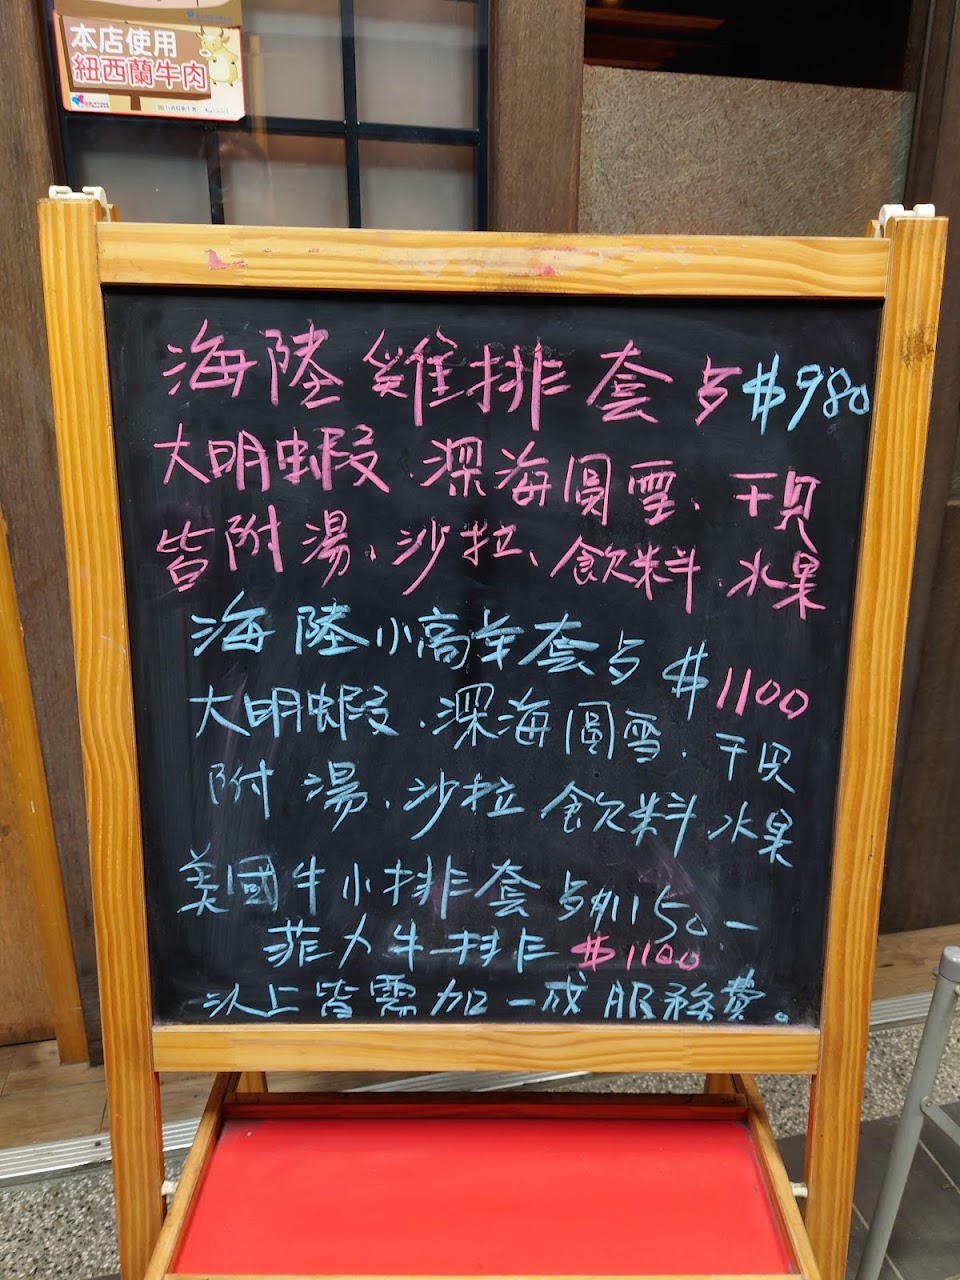 本店使用
紐西蘭牛肉
海陸雞排套歺$980
大明蝦.深海圓雪、干贝
皆附湯、沙拉、飲料.水果
海陸小高羊套歺$1100
大明蝦.深海圓雪.干贝
附湯、沙拉飲料.水果
美國牛小排套歺$1150-
菲力牛排$1100
以上皆需加一成服務費。